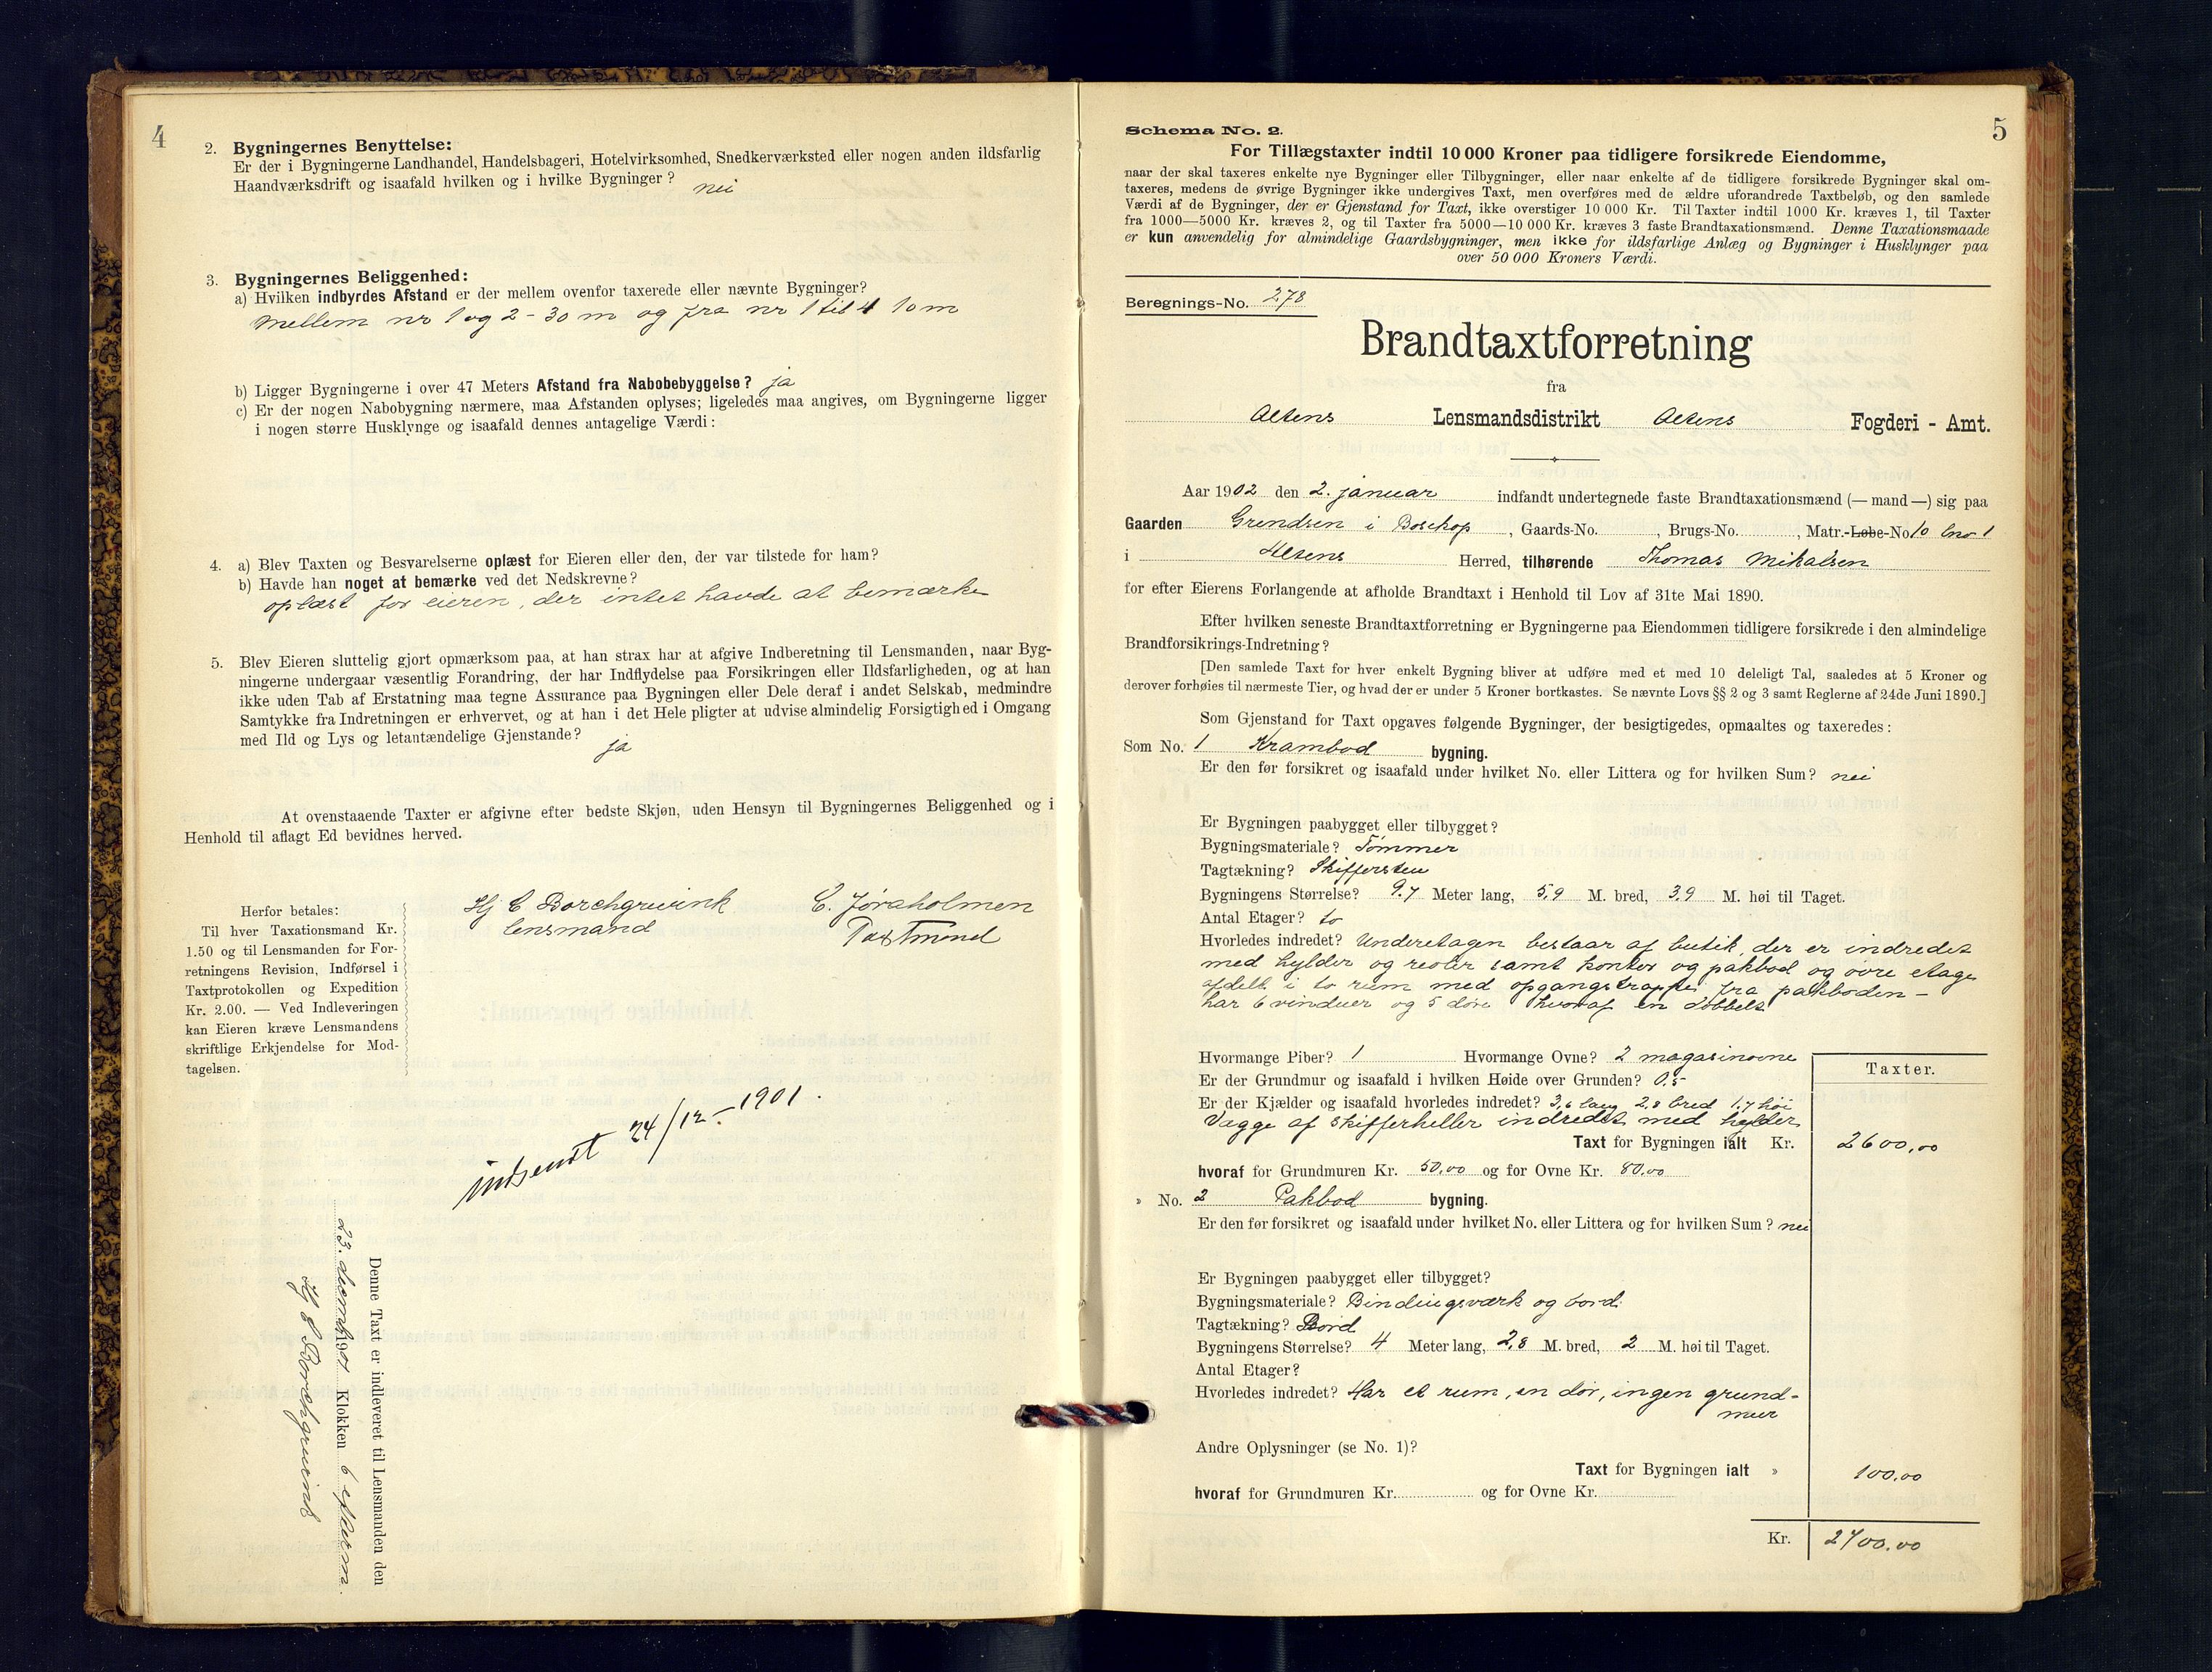 4
2. Bygningernes Benyttelse:
Er der i Bygningerne Landhandel, Handelsbageri, Hotelvirksomhed, Snedkerværksted eller nogen anden ildsfarlig
Haandværksdrift og isaafald hvilken og i hvilke Bygninger? nei
3. Bygningernes Beliggenhed:
a) Hvilken indbyrdes Afstand er der mellem ovenfor taxerede eller nævnte Bygninger?
mellem nr 1 og 2 - 30 m og fra nr 1 til 4 10 m
b) Ligger Bygningerne i over 47 Meters Afstand fra Nabobebyggelse? ja
c) Er der nogen Nabobygning nærmere, maa Afstanden oplyses; ligeledes maa angives, om Bygningerne ligger
i nogen større Husklynge og isaafald dennes antagelige Værdi:
4. a) Blev Taxten og Besvarelserne oplæst for Eieren eller den, der var tilstede for ham?
b) Havde han noget at bemærke ved det Nedskrevne?
oplæst for eieren, der intet havde at bemærke
5. Blev Eieren sluttelig gjort opmærksom paa, at han strax har at afgive Indberetning til Lensmanden, naar Byg-
ningerne undergaar væsentlig Forandring, der har Indflydelse paa Forsikringen eller Ildsfarligheden, og at han
ikke uden Tab af Erstatning maa tegne Assurance paa Bygningen eller Dele deraf i andet Selskab, medmindre
Samtykke fra Indretningen er erhvervet, og at han i det Hele pligter at udvise almindelig Forsigtighed i Omgang
med Ild og Lys og letantændelige Gjenstande? ja
At ovenstaaende Taxter er afgivne efter bedste Skjøn, uden Hensyn til Bygningernes Beliggenhed og i
Henhold til aflagt Ed bevidnes herved.
Herfor betales:
Til hver Taxationsmand Kr.
1.50 og til Lensmanden for For-
retningens Revision, Indførsel i
Taxtprotokollen og Expedition
Kr. 2.00. — Ved Indleveringen
kan Eieren kræve Lensmandens
skriftlige Erkjendelse for Mod-
tagelsen.
Hj C Borchgrevink
lensmand
C. Jøraholmen
Taxtmænd
indsendt 24/12 - 1901.
Denne Taxt er indleveret til Lensmanden den
23. decembr 1901 Klokken 6 efterm.
Hj C Borchgrevink
5
Schema No. 2.
For Tillægstaxter indtil 10 000 Kroner paa tidligere forsikrede Eiendomme,
naar der skal taxeres enkelte nye Bygninger eller Tilbygninger, eller naar enkelte af de tidligere forsikrede Bygninger skal om-
taxeres, medens de øvrige Bygninger ikke undergives Taxt, men overføres med de ældre uforandrede Taxtbeløb, og den samlede
Værdi af de Bygninger, der er Gjenstand for Taxt, ikke overstiger 10 000 Kr. Til Taxter indtil 1000 Kr. kræves 1, til Taxter
fra 1000—5000 Kr. kræves 2, og til Taxter fra 5000—10 000 Kr. kræves 3 faste Brandtaxationsmænd. Denne Taxationsmaade
er kun anvendelig for almindelige Gaardsbygninger, men ikke for ildsfarlige Anlæg og Bygninger i Husklynger paa
over 50 000 Kroners Værdi.
Beregnings-No. 278
Brandtaxtforretning
fra
Altens Lensmandsdistrikt Altens Fogderi - Amt.
Aar 1902 den 2. januar indfandt undertegnede faste Brandtaxationsmænd (— mand —) sig paa
Gaarden Grendsen i Bosekop, Gaards-No. , Brugs-No. , Matr.-Løbe-No 10 bno 1
i Altens Herred, tilhørende Thomas Mikalsen
for efter Eierens Forlangende at afholde Brandtaxt i Henhold til Lov af 31te Mai 1890.
Efter hvilken seneste Brandtaxtforretning er Bygningerne paa Eiendommen tidligere forsikrede i den almindelige
Brandforsikrings-Indretning?
[Den samlede Taxt for hver enkelt Bygning bliver at udføre med et med 10 deleligt Tal, saaledes at 5 Kroner og
derover forhøies til nærmeste Tier, og hvad der er under 5 Kroner bortkastes. Se nævnte Lovs §§ 2 og 3 samt Reglerne af 24de Juni 1890.]
Som Gjenstand for Taxt opgaves følgende Bygninger, der besigtigedes, opmaaltes og taxeredes:
Som No. 1 Krambod bygning.
Er den før forsikret og isaafald under hvilket No. eller Littera og for hvilken Sum? nei
Er Bygningen paabygget eller tilbygget?
Bygningsmateriale? Tømmer
Tagtækning? Skiffersten
Bygningens Størrelse? 9.7 Meter lang, 5,9 M. bred, 3,9 M. høi til Taget.
Antal Etager? to
Hvorledes indredet? Underetagen bestaar af butik, der er indredet
med hylder og reoler samt kontor og pakbod og øvre etage
afdelt i to rum med opgangstrappe fra pakboden -
har 6 vinduer og 5 døre hvoraf en dobbelt
Hvormange Piber? 1 Hvormange Ovne? 2 magasinovne
Er der Grundmur og isaafald i hvilken Høide over Grunden? 0.5-
Er der Kjælder og isaafald hvorledes indredet? 3,6 lang 2,8 bred 1,7 høi
Vægge af skifferheller indredet med hylder
Taxter.
Taxt for Bygningen ialt Kr. 2600,00
hvoraf for Grundmuren Kr. 50,00 og for Ovne Kr. 80.00
» No. 2 Pakbod bygning.
Er den før forsikret og isaafald under hvilket No. eller Littera og for hvilken Sum? nei
Er Bygningen paabygget eller tilbygget?
Bygningsmateriale? Bindingsværk og bord.
Tagtækning? Bord
Bygningens Størrelse? 4 Meter lang, 2,8 M. bred, 2 M. høi til Taget.
Antal Etager?
Hvorledes indredet? Har et rum, en dør, ingen grund-
muur
Andre Oplysninger (se No. 1)?
Taxt for Bygningen ialt » 100,00
hvoraf for Grundmuren Kr. og for Ovne Kr.
Kr. 2700.00